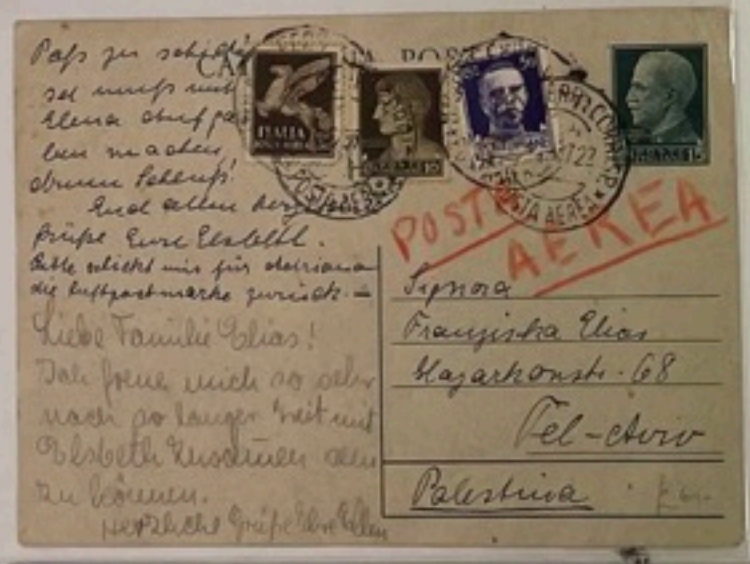 Paß zu schicken
sel muß mit
Elena
ben machen,
drum Schluß!
Euch allen herzliche
Grüße Eure Elsbeth.
Bitte schickt mir für Adriana
die Luftpostmarke zurück.—
Liebe Familie Elias!
Ich freue mich so sehr
nach so langer Zeit mit
Elsbeth zusammen sein
zu können.
Herzliche Grüße Ihre Ellen
ITALIA
POSTA AEREA
POSTA AEREA
POSTA AEREA
POSTA
AEREA
Signora
Franziska Elias
Hayarkonstr. 68
Tel-Aviv
Palestina